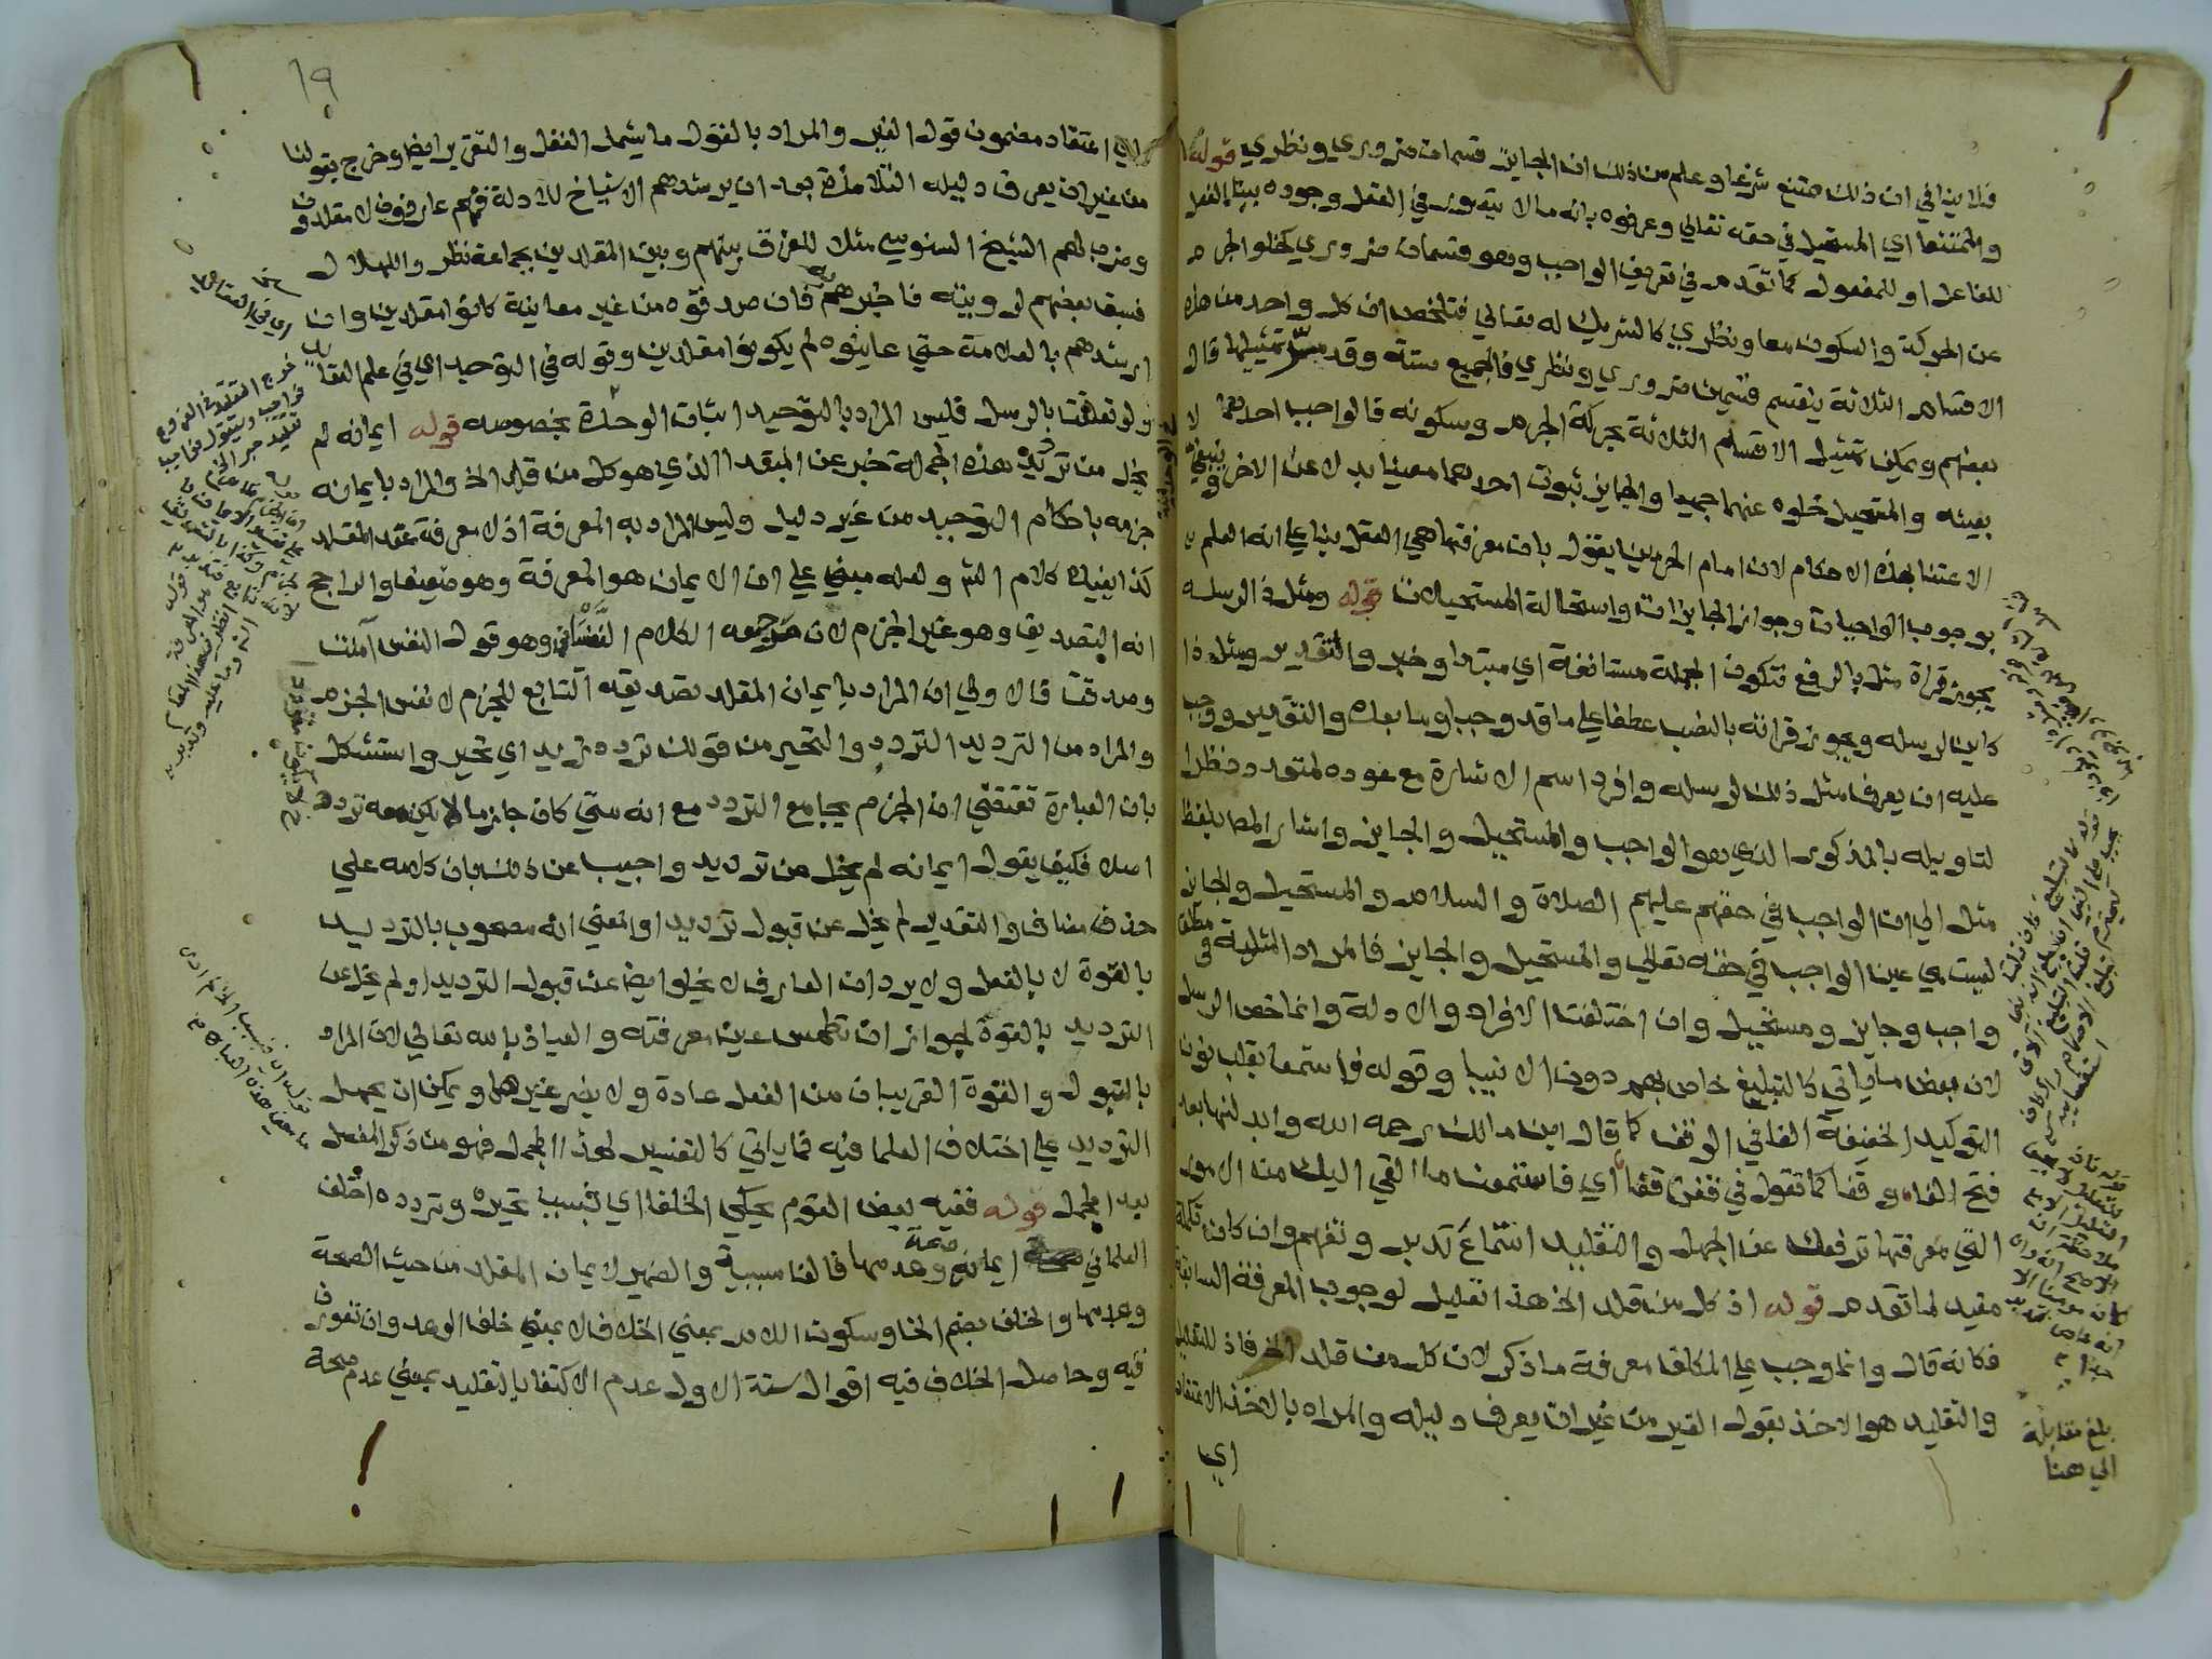 فلا ينافي ان ذلك ممتنع شرعا وعلم من ذلك ان الجايز قسمان ضروري ونظري قوله
والممتنعا اي المستحيل في حقه تعالي وعرفوه بانه ما لا يتصور في العقل وجوده ببنا الفعل
للفاعل او للمفعول كما تقدم في تعريف الواجب وهو قسمان ضروري كخلو الجرم
عن الحركة والسكون معا ونظري كالشريك له تعالي فتلخص ان كل واحد من هذه
الاقسام الثلاثة ينقسم قسمين ضروري ونظري فالجميع ستة وقد مر تمثيلها قال
بعضهم ويمكن تمثيل الاقسام الثلاثة بحركة الجرم وسكونه فالواجب احدهما لا
بعينه والمستحيل خلوه عنهما جميعا والجايز ثبوت احدهما معينا بدلا عن الاخر وينبغي
الاعتنا بهذه الاحكام لان امام الحرمين يقول بان معرفتها هي العقل بنا علي انه العلم
بوجوب الواجبات وجواز الجايزات واستحالة المستحيلات قوله ومثل ذا لرسله
يجوز قراة مثل بالرفع فتكون الجملة مستانفة اي مبتدا وخبر والتقدير ومثل ذا
كاين لرسله ويجوز قراته بالنصب عطفا علي ما قد وجب او ما بعده والتقدير ووجب
عليه ان يعرف مثل ذلك لرسله وافرد اسم الاشارة مع عوده لمتعدد نظرا
لتاويله بالمذكور الذي هو الواجب والمستحيل والجايز واشار المص بلفظ
مثل الي ان الواجب في حقهم عليهم الصلاة والسلام والمستحيل والجايز
ليست هي عين الواجب في حقه تعالي والمستحيل والجايز فالمراد المثلية في مطلق
واجب وجايز ومستحيل وان اختلفت الافراد والادلة وانما خص الرسل
لان بعض ما ياتي كالتبليغ خاص بهم دون الانبيا وقوله فاستمعا بقلب نون
التوكيد الخفيفة الفا في الوقف كما قال ابن مالك رحمه الله وابدلنها بعد
فتح الفا وقفا كما تقول في قفن قفا اي فاستمعن ما القي اليك من الامور
التي معرفتها ترفعك عن الجهل والتقليد استماع تدبر وتفهم وان كان تكملة
مفيد لما تقدم قوله اذ كل من قلد الخ هذا تعليل لوجوب المعرفة السابقة
فكانه قال وانما وجب علي المكلف معرفة ما ذكر لان كل من قلد الخ فاذ للتعليل
والتقليد هو الاخذ بقول الغير من غير ان يعرف دليله والمراد بالاخذ الاعتقاد
اي
بلغ مقابلة
الي هنا
١٩
اي اعتقاد مضمون قول الغير والمراد بالقول ما يشمل الفعل والتقرير ايضا وخرج بقولنا
من غير ان يعرف دليله التلامذة بعد ان يرشدهم الاشياخ للادلة فهم عارفون لا مقلدون
وضرب لهم الشيخ السنوسي مثلا للفرق بينهم وبين المقلدين بجماعة نظروا للهلال
فسبق بعضهم لرويته فاخبرهم به فان صدقوه من غير معاينة كانوا مقلدين وان
ارشدهم بالعلامة حتي عاينوه لم يكونوا مقلدين وقوله في التوحيد اي في علم العقايد
ولو تعلقت بالرسل فليس المراد بالتوحيد اثبات الوحدة بخصوصه قوله ايمانه لم
يخل من ترديد هذه الجملة خبر عن المبتدا الذي هو كل من قلد الخ والمراد بايمانه
جزمه باحكام التوحيد من غير دليل وليس المراد به المعرفة اذ لا معرفة عند المقلد
كذا يفيده كلام الشر ولعله مبني علي ان الايمان هو المعرفة وهو ضعيف والراجح
انه التصديق وهو غير الجزم لان مرجعه الكلام النفساني وهو قول النفس آمنت
وصدقت فالاولي ان المراد بايمان المقلد تصديقه التابع للجزم لا نفس الجزم
والمراد من الترديد التردد والتحير من قولك تردد زيد اي تحير واستشكل
بان العبارة تقتضي ان الجزم يجامع التردد مع انه متي كان جازما لا يكن معه تردد
اصلا فكيف يقول ايمانه لم يخل من ترديد واجيب عن ذلك بان كلامه علي
حذف مضاف والتقدير لم يخل عن قبول ترديد او المعني انه مصحوب بالترديد
بالقوة لا بالفعل ولا يرد ان العارف لا يخلو ايضا عن قبول الترديد او لم يخل عن
الترديد بالقوة لجواز ان تطمس عين معرفته والعياذ بالله تعالي لان المراد
بالقبول والقوة القريبان من الفعل عادة ولا يضر غيرهما ويمكن ان يحمل
الترديد علي اختلاف العلما فيه فما ياتي كالتفسير لهذا المجمل فهو من ذكر المفصل
بعد المجمل قوله ففيه بعض القوم يحكي الخلفا اي فبسبب تحيره وتردده اختلف
العلما في صحة ايمانه وعدمها فالفا سببية والضمير لايمان المقلد من حيث الصحة
وعدمها والخلف بضم الخا وسكون اللام بمعني الاختلاف لا بمعني خلف الوعد وان تعورف
فيه وحاصل الخلاف فيه اقوال ستة الاول عدم الاكتفا بالتقليد بمعني عدم صحة